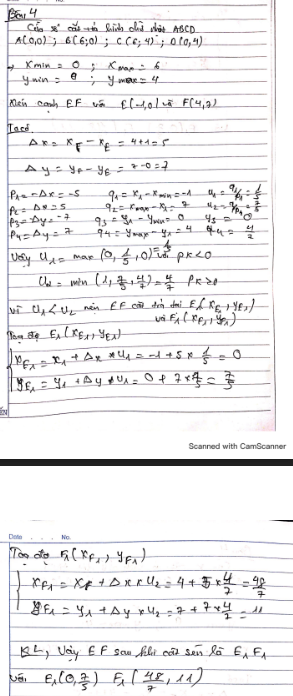 Bài 4
Cửa sổ cắt là hình chữ nhật ABCD
A(0,0) ; B(6;0) ; C(6;4) ; D(0,4)
→ xmin = 0 ; xmax = 6
ymin = 0 ; ymax = 4
Xén cạnh EF với E(-1,0) và F(4,7)
Ta có
Δx = xF - xE = 4+1 = 5
Δy = yF - yE = 7-0 = 7
P1 = -Δx = -5 q1 = x1 - xmin = -1 u1 = q1/p1 = 1/5
P2 = Δx = 5 q2 = xmax - x1 = 7 u2 = q2/p2 = 7/5
P3 = -Δy = -7 q3 = y1 - ymin = 0 u3 = 0
P4 = Δy = 7 q4 = ymax - y1 = 4 u4 = 4/7
Vậy U1 = max (0, 1/5, 0) = 1/5 với pk<0
U2 = min (1, 7/5, 4/7) = 4/7 pk>0
vì U1 < U2 nên EF cắt tại E1(xE1, yE1)
và F1(xF1, yF1)
Tọa độ E1(xE1, yE1)
xE1 = x1 + Δx * u1 = -1 + 5 x 1/5 = 0
yE1 = y1 + Δy * u1 = 0 + 7 x 1/5 = 7/5
Scanned with CamScanner
Date No.
Tọa độ F1(xF1, yF1)
xF1 = xF + Δx x u2 = 4 + 5 x 4/7 = 48/7
yF1 = y1 + Δy x u2 = 7 + 7 x 4/7 = 11
KL, Vậy EF sau khi cắt xén là E1F1
với E1(0, 7/5) F1(48/7, 11)